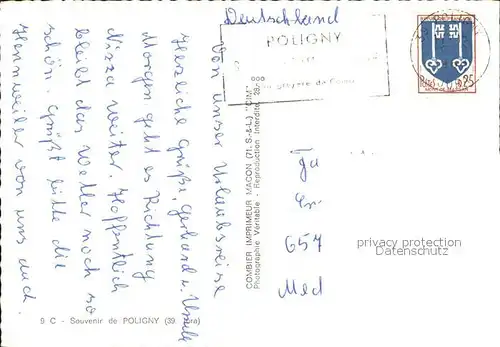 Von unser Urlaubsreise
herzliche Grüße, Gerhard u. Ursula
Morgen geht es Richtung
Nizza weiter. Hoffentlich
bleibt das Wetter noch so
schön. Grüßt bitte die
Hennweiler von uns auch.
9 C - Souvenir de POLIGNY (39 Jura)
COMBIER IMPRIMEUR MACON (71. S.-&-L.) "CIM"
Photographie Véritable - Reproduction Interdite
Deutschland
POLIGNY
REPUBLIQUE FRANÇAISE
0,25
MONT-DE-MARSAN
Fa
657
Med
privacy protection
Datenschutz